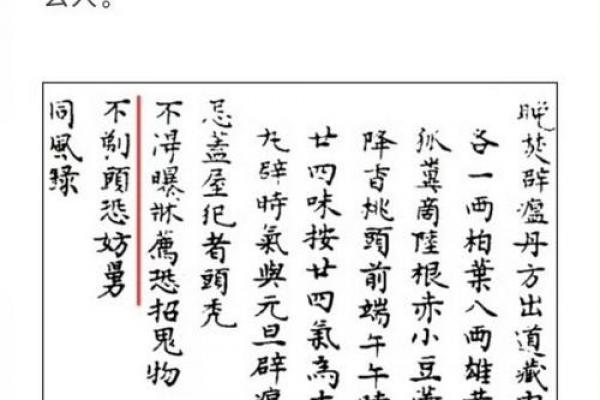 人。
晚焚辟瘟丹方出道藏
各一两柏葉八两雄
狐糞商陸根赤小豆
降香桃頭前端午午
廿四味按廿四氣為
丸辟時氣與元旦辟瘟
忌蓋屋犯者頭禿
不得曝牀薦恐招鬼物
不剃頭恐妨舅
同風錄